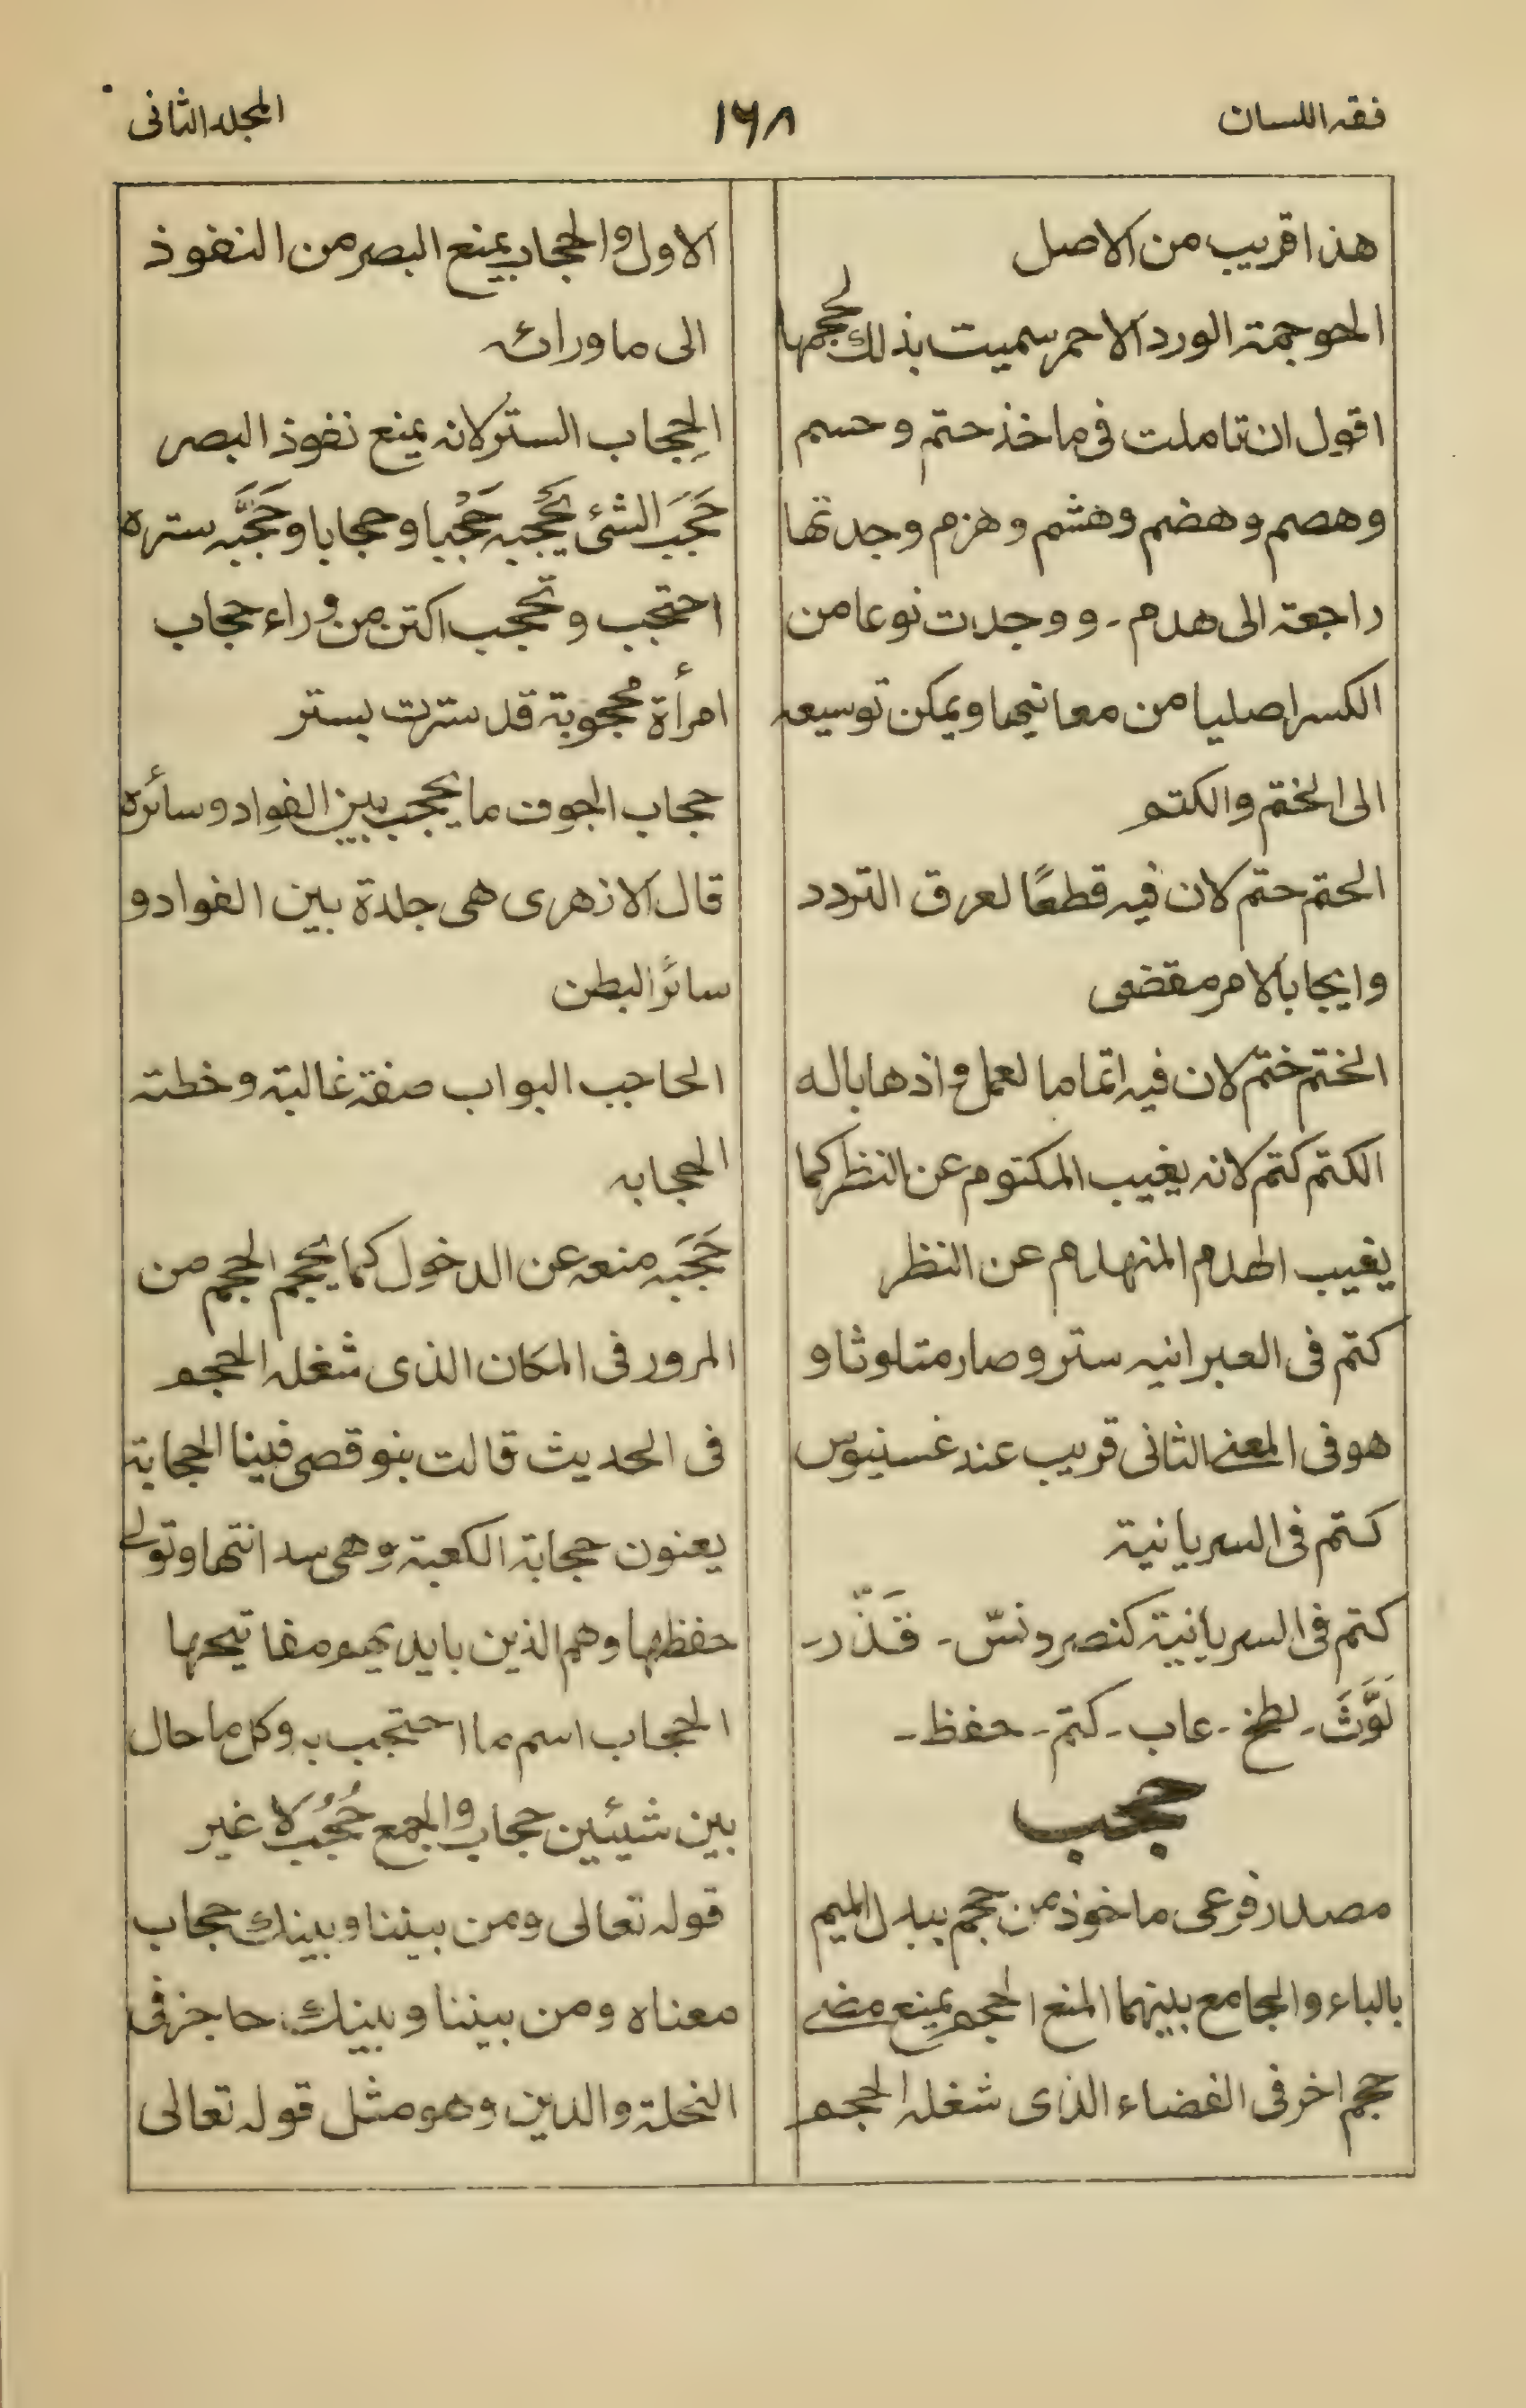 فقه اللسان
١٦٨
المجلد الثانى
هذا قريب من الاصل
الحوجمة الورد الاحمر سميت بذلك لحجمها
اقول ان تاملت فى ماخذ حتم و حسم
و هصم و هضم و هشم و هزم وجدتها
راجعة الى هدم - و وجدت نوعا من
الكسر اصليا من معانيها و يمكن توسيعه
الى الختم و الكتم
الحتم حتم لان فيه قطعًا لعرق التردد
و ايجابا لامر مقضى
الختم ختم لان فيه اتماما لعمل و اذهابا له
الكتم كتم لانه يغيب المكتوم عن النظر كما
يغيب الهدم المنهدم عن النظر
كتم فى العبرانيه ستر و صار متلوثا و
هو فى المعنى الثانى قريب عند غسنيوس
كتم فى السريانية
كتم فى السريانية كنصر دنّس - قَذّر -
لَوَّثَ - لطخ - عاب - كتم - حفظ -
حجب
مصدر فرعى ماخوذ من حجم ببدل الميم
بالباء و الجامع بينهما المنع الحجم يمنع مضى
حجم اخر فى الفضاء الذى شغله الحجم
الاول و الحجاب يمنع البصر من النفوذ
الى ما ورائه
الحِجاب الستر لانه يمنع نفوذ البصر
حَجَبَ الشئ يَحْجُبه حَجْبا و حجابا و حَجَّبَه ستره
احتجب و تحجب اكتن من وراء حجاب
امرأة محجوبة قد سترت بستر
حجاب الجوف ما يحجب بين الفواد و سائره
قال الازهرى هى جلدة بين الفواد و
سائر البطن
الحاجب البواب صفة غالبة و خطته
الحجابه
حَجَبَه منعه عن الدخول كما يحجم الحجم من
المرور فى المكان الذى شغله الحجم
فى الحديث قالت بنو قصى فينا الحجابة
يعنون حجابة الكعبة و هى سدانتها و تولى
حفظها و هم الذين بايديهم مفاتيحها
الحجاب اسم ما احتجب به و كل ما حال
بين شيئين حجاب و الجمع حُجُب لا غير
قوله تعالى و من بيننا و بينك حجاب
معناه و من بيننا و بينك حاجز فى
النحلة و الدين و هو مثل قوله تعالى